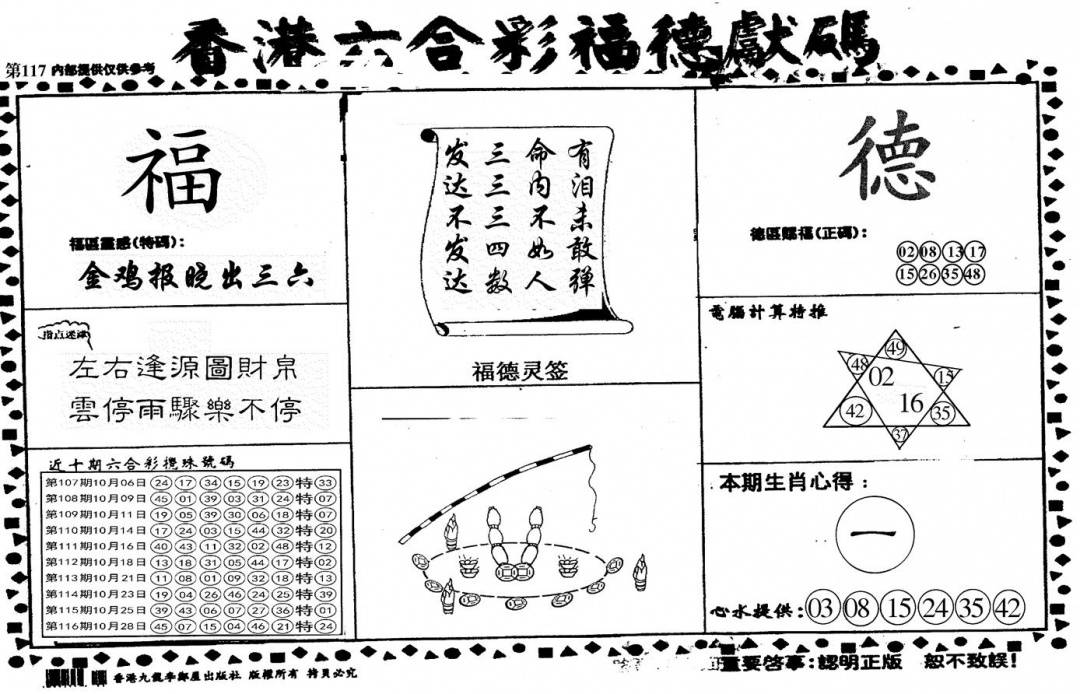 香港六合彩福德獻碼
第117 内部提供仅供参考
福
福區靈感(特碼):
金鸡报晓出三六
指点迷津
左右逢源圖財帛
雲停雨驟樂不停
近十期六合彩攪珠號碼
第107期10月06日 24 17 34 15 19 23 特 33
第108期10月09日 45 01 39 03 31 24 特 07
第109期10月11日 19 05 39 30 06 18 特 07
第110期10月14日 17 24 03 15 44 32 特 20
第111期10月16日 40 43 11 32 02 48 特 12
第112期10月18日 13 18 31 05 44 17 特 02
第113期10月21日 11 08 01 09 32 18 特 13
第114期10月23日 19 04 26 46 24 25 特 39
第115期10月25日 39 43 06 07 27 36 特 01
第116期10月28日 45 07 15 04 46 21 特 24
有泪未敢弹
命内不如人
三三三四数
发达不发达
福德灵签
德
德區賜福(正碼):
02 08 13 17
15 26 35 48
電腦計算特推
49
48 02 15
42 16 35
37
本期生肖心得:
一
心水提供: 03 08 15 24 35 42
重要啓事:認明正版 恕不致誤!
香港九龍李鄭屋出版社 版權所有 拷貝必究